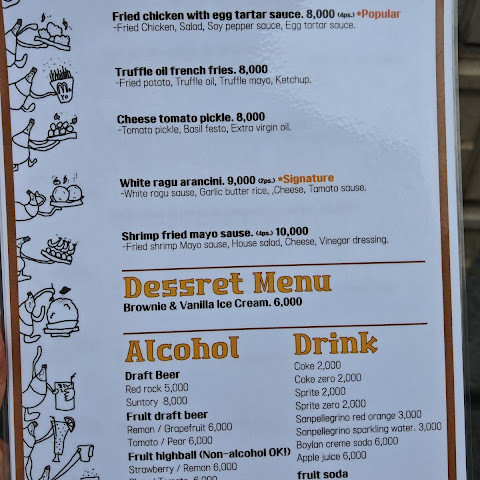 Fried chicken with egg tartar sauce. 8,000 (4ps.) *Popular
-Fried Chicken, Salad, Soy pepper sauce, Egg tartar sauce.
Truffle oil french fries. 8,000
-Fried potato, Truffle oil, Truffle mayo, Ketchup.
Cheese tomato pickle. 8,000
-Tomato pickle, Basil festo, Extra virgin oil.
White ragu arancini. 9,000 (2ps.) *Signature
-White ragu sause, Garlic butter rice, ,Cheese, Tamato sause.
Shrimp fried mayo sause. (4ps.) 10,000
-Fried shrimp Mayo sause, House salad, Cheese, Vinegar dressing.
Dessret Menu
Brownie & Vanilla Ice Cream. 6,000
Alcohol
Draft Beer
Red rock 5,000
Suntory 8,000
Fruit draft beer
Remon / Grapefruit 6,000
Tomato / Pear 6,000
Fruit highball (Non-alcohol OK!)
Strawberry / Remon 6,000
Drink
Coke 2,000
Coke zero 2,000
Sprite 2,000
Sprite zero 2,000
Sanpellegrino red orange 3,000
Sanpellegrino sparkling water. 3,000
Boylan creme soda 6,000
Apple juice 6,000
fruit soda